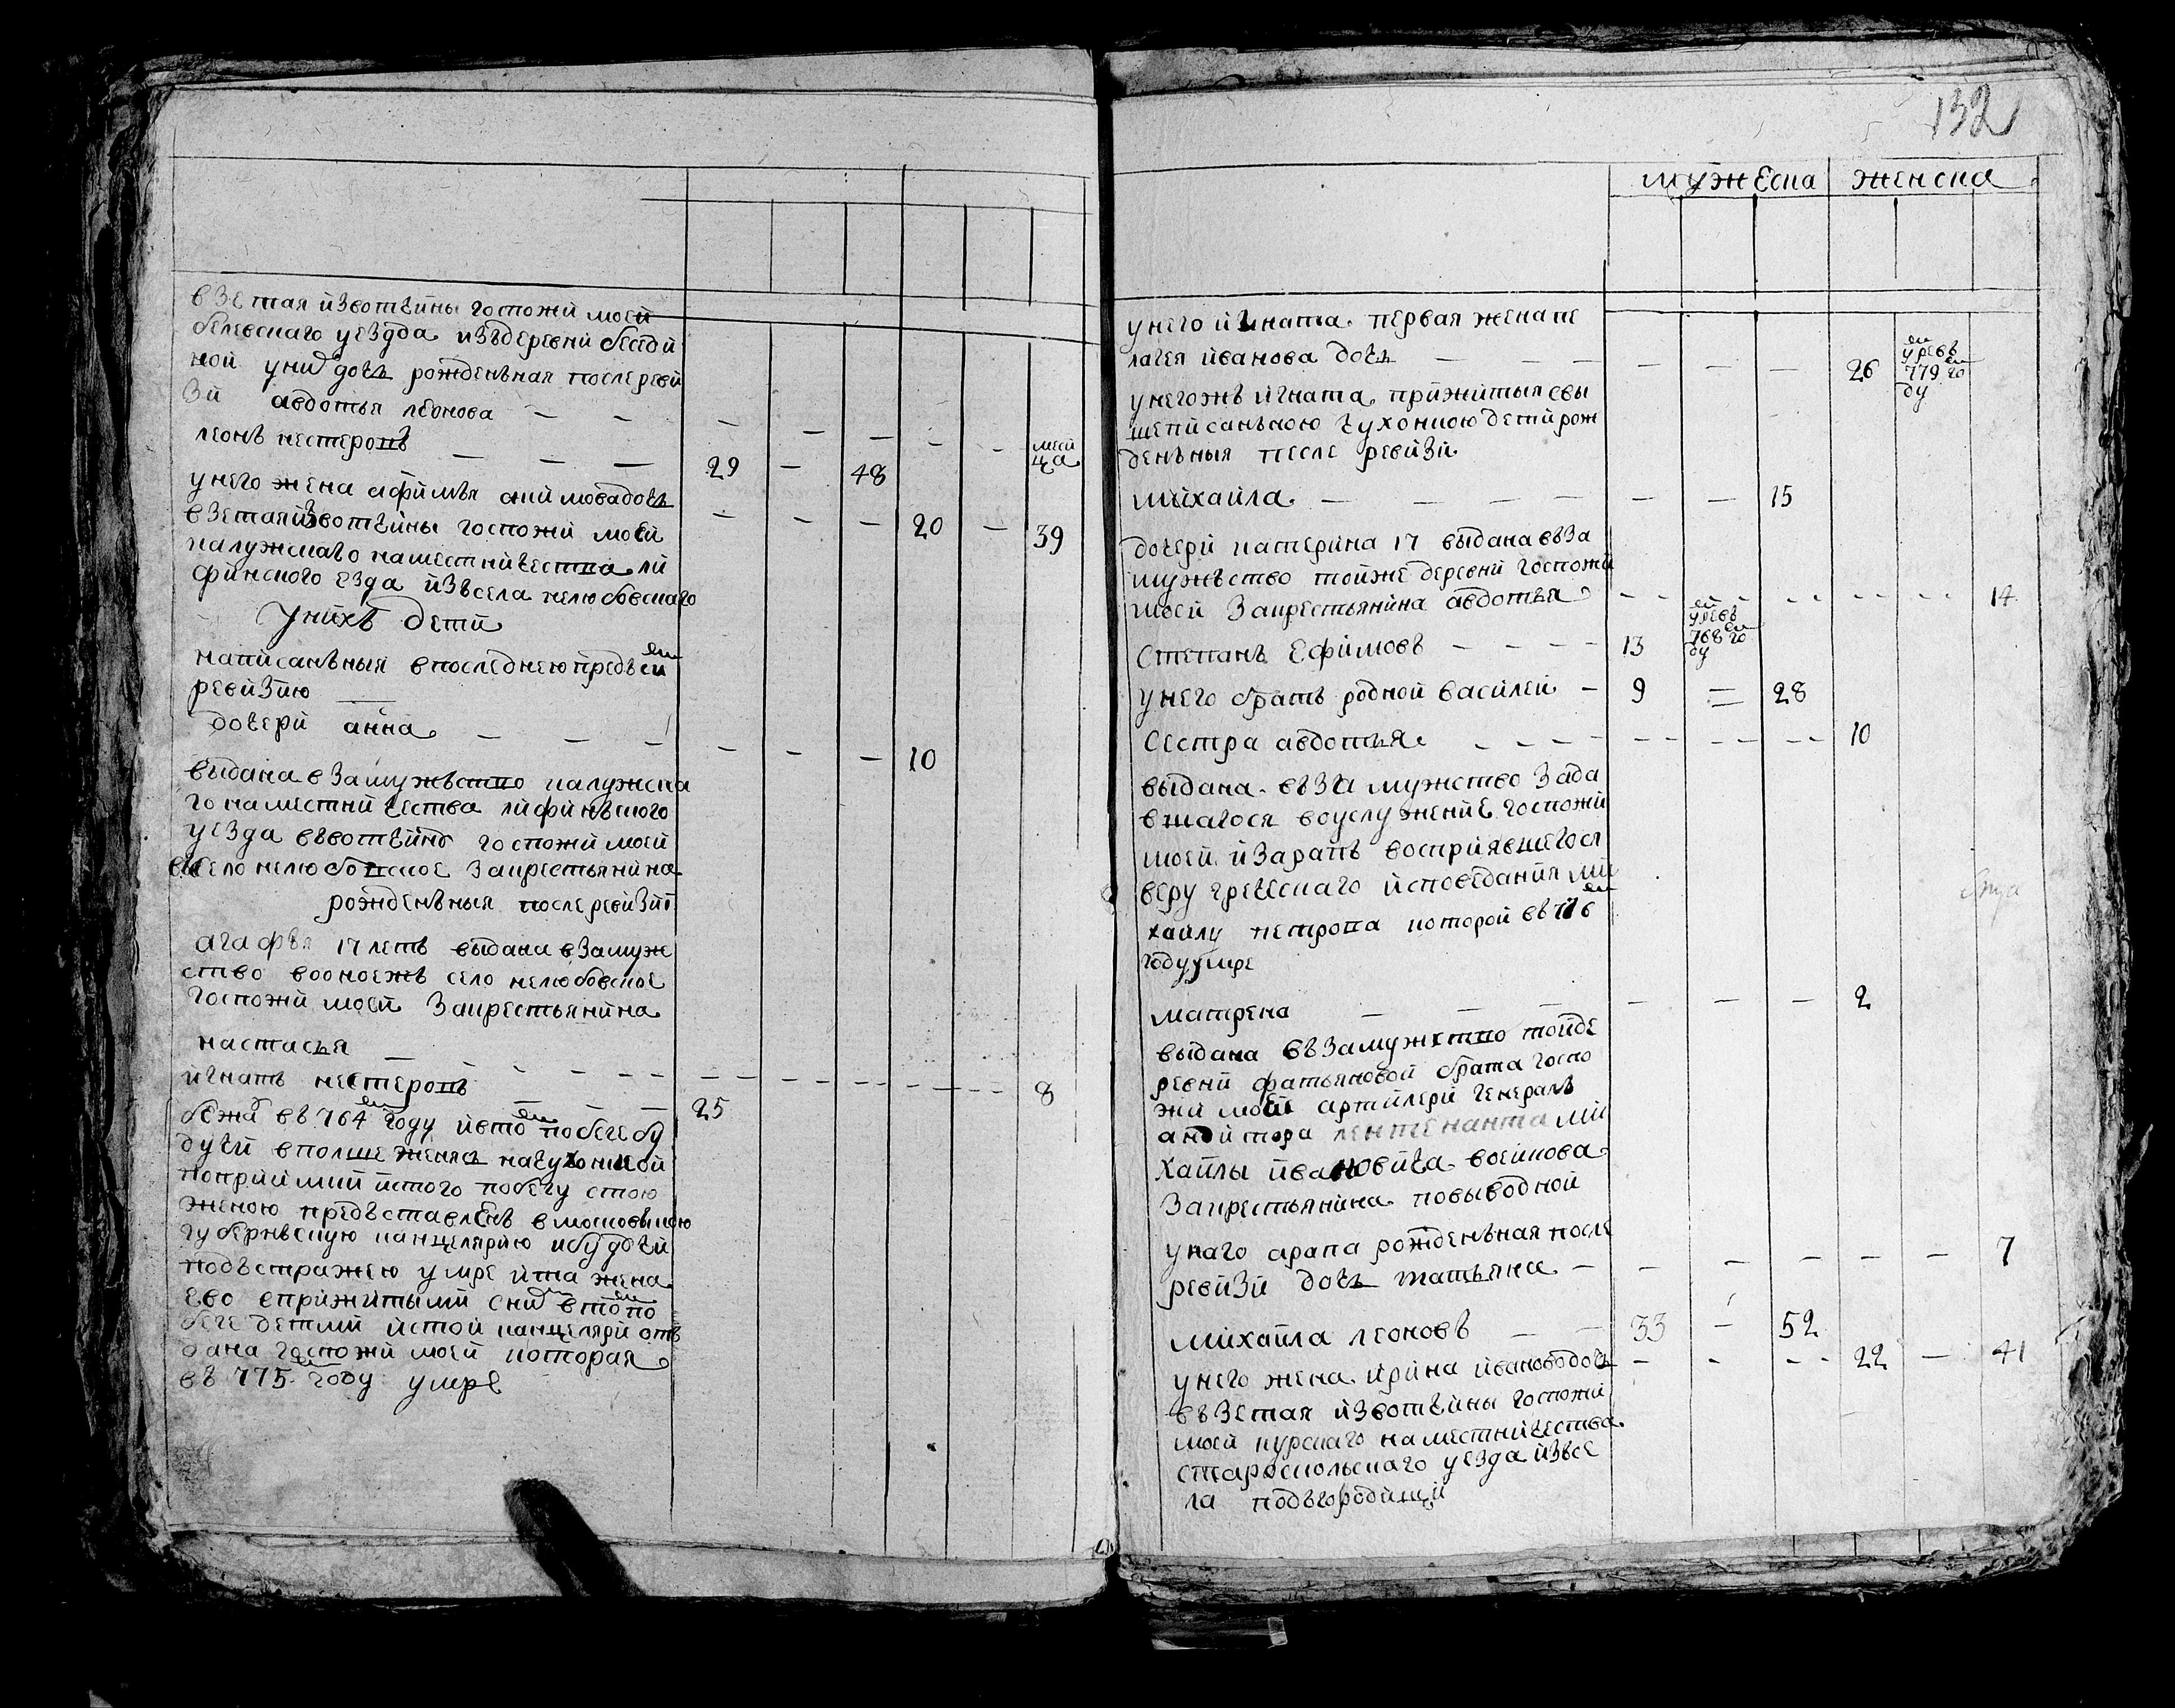 взетая извотчины госпожи моей
белевскаго уездда изъдеревни беседи
ной у них дочь рожденъная послереви
зи авдотья леонова — — — — — — — меся
ца
леонъ нестеровъ — — — 29 — 48
у него жена афимья акимовадочь — — — 20 — 39
взетаяизвотчины госпожи моей
калужскаго наместничества ли
финского езда изъсела нелюбовскаго
У нихъ дети
написанъныя впоследнею предъ сею
ревизию
дочери анна — — — — — — 10
выдана взамужъство калужска
го наместничества лифинъского
уезда въвотчину госпожи моей
въсело нелюбовское закрестьянина
рожденъныя послеревизии
агафья 17 летъ выдана взамуж
ство вооноежъ село нелюбовское
госпожи моей закрестьянина
настасья — — — — — — — — 8
игнатъ нестеровъ — — — 25
бежа въ 764м году ивтом побеге бу
дучи вполше женясь начухонкой
поприими истого побегу стою
женою предъставленъ вмосковъскую
губернъскую канцелярию ибудучи
подъстражею умре ита жена
ево сприжитыми сним втом по
беге детми истой канцелярии отъ
дана госпожи моей которая
въ 775м году умре
132
мужеска женска
у него игната первая жена пе
лагея иванова дочь — — — — — — 26 умре въ
779м го
ду
у негожъ игната прижитыя свы
шеписанъною чухонкою дети рож
денъныя после ревизи
михайла — — — — — — 15
дочери катерина 17 выдана въза
мужъство тойже деревни госпожи
моей закрестьянина авдотья — — — — — — 14
Степанъ Ефимовъ — — — 13 умре въ
768м го
ду
у него братъ родной василей — 9 — 28
Сестра авдотья — — — — — — 10
выдана въза мужство зада
вшагося воуслужение госпожи
моей изарапъ восприявшегося
веру греческаго исповедания ми
хайлу петрова которой въ 776м
году умре
матрена — — — — — 2
выдана въ замужство тойде
ревни фатьяновой брата госпо
жи моей артилери генералъ
аудитора лентенанта ми
хайлы ивановича воейкова
закрестьянина повыводной
у наго арапа рожденъная после
ревизи дочь татьяна — — — — — — 7
михайла леоновъ — — 33 — 52
у него жена ирина ивановадочь — — — 22 — 41
въ зетая извотчины госпожи
моей курскаго наместничества
староскольскаго уезда извсе
ла подъгородищи